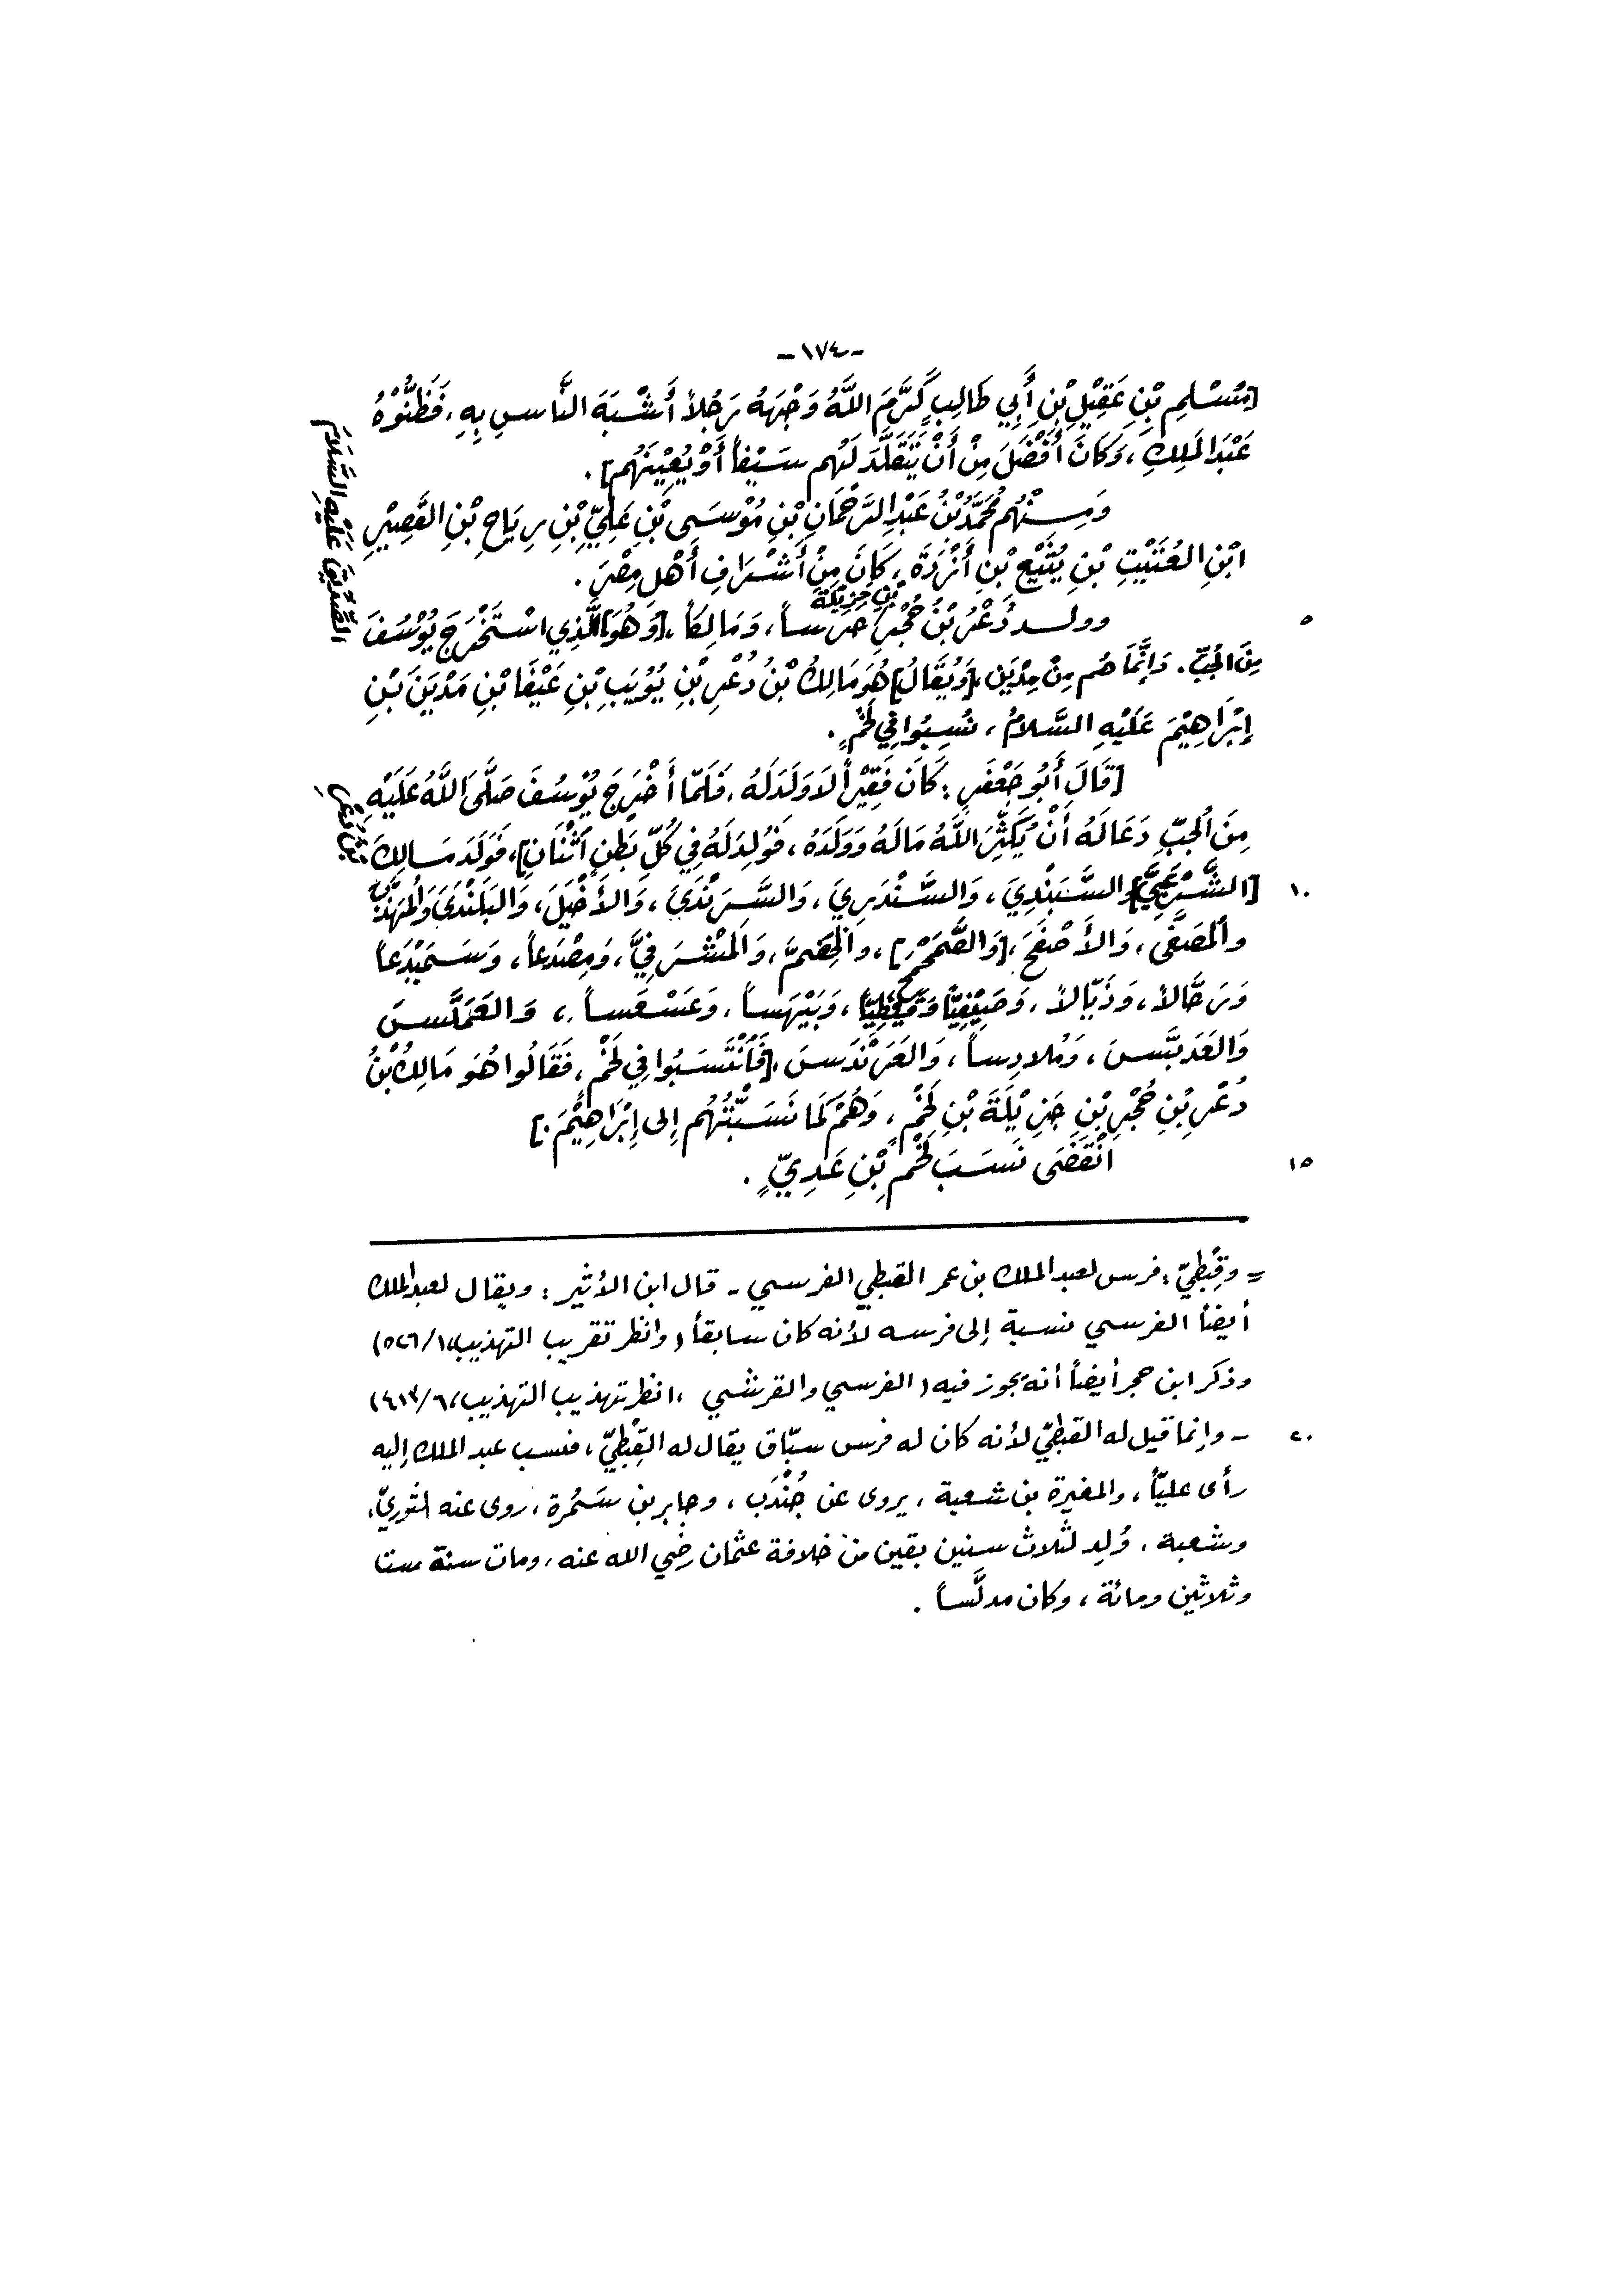 -١٧٤-
[مُسْلِمِ بْنِ عَقِيْلِ بْنِ أَبِي طَالِبٍ كَرَّمَ اللَّهُ وَجْهَهُ رَجُلاً أَشْبَهَ النَّاسِ بِهِ، فَظَنُّوْهُ
عَبْدَ المَلِكِ، وَكَانَ أَفْضَلَ مِنْ أَنْ يَتَقَلَّدَ لَهُم سَيْفاً أَوْ يُعِيْنَهُم].
وَمِنْهُم مُحَمَّدُ بْنُ عَبْدِ الرَّحْمَانِ بْنِ مُوْسَى بْنِ عَلِيِّ بْنِ رِيَاحِ بْنِ القَصِيْرِ
ابْنِ العُتَيْتِ بْنِ يُثَيْعِ بْنِ أَزْدَةَ، كَانَ مِنْ أَشْرَافِ أَهْلِ مِصْرَ.
٥
وولد دُعْرُ بْنُ حُجْرِ بْنِ جَزِيْلَةَ حرساً، وَمَالِكاً، [وَهُوَ] الَّذِي اسْتَخْرَجَ يُوْسُفَ
الصِّدِّيقَ عَلَيْهِ السَّلَامُ
مِنَ الجُبِّ. وَإِنَّمَا هُم مِنْ مَدْيَنَ، [وَيُقَالُ] هُوَ مَالِكُ بْنُ دُعْرِ بْنِ يُوَيْبِ بْنِ عَيْفَا بْنِ مَدْيَنَ بْنِ
إِبْرَاهِيْمَ عَلَيْهِ السَّلَامُ، نُسِبُوا فِي لَخْمٍ.
[قَالَ أَبُو جَعْفَرٍ: كَانَ فَقِيْراً لاَ وَلَدَ لَهُ، فَلَمّا أَخْرَجَ يُوْسُفَ صَلَّى اللَّهُ عَلَيْهِ
مِنَ الجُبِّ دَعَا لَهُ أَنْ يُكَثِّرَ اللَّهُ مَالَهُ وَوَلَدَهُ، فَوُلِدَ لَهُ فِي كُلِّ بَطْنٍ اثْنَانِ]، فَوَلَدَ مَالِكُ
بْنُ دُعْرٍ
١٠
[الشَّرْعَبِيَّ] والسَّبَنْدِيَ، وَالسَّنْدَرِيَ، وَالسَّرَنْدَىَ، وَالأَخْيَلَ، وَالبَلَنْدَىَ وَالمُهَنَّدَ
والمَصَفَّى، وَالأَصْفَحَ، [وَالصَّمَحْمَحَ]، والخِضَمَّ، وَالمَشْرَفِيَّ، وَمِصْدَعاً، وَسَمَيْدَعاً
وَرَحَّالاً، وَذَبّالاً، وَصَيْفِيّاً وَقِبْطِيّاً، وَبَيْهَساً، وَعَسْعَساً،، وَالعَمَلَّسَ
وَالعَدَبَّسَ، وَمُلادِساً، وَالعَرَنْدَسَ، [فَانْتَسَبُوا فِي لَخْمٍ، فَقَالُوا هُوَ مَالِكُ بْنُ
دُعْرِ بْنِ حُجْرِ بْنِ جَزِيْلَةَ بْنِ لَخْمٍ، وَهُمْ كَمَا نَسَبْتُهُم إِلى إِبْرَاهِيْمَ.]
١٥
انْقَضَى نَسَبَ لَخْمِ بْنِ عَدِيٍّ.
= وقِبْطِيّ: فرس لعبد الملك بن عمر القبطي الفرسي - قال ابن الأثير: ويقال لعبد الملك
أيضاً الفرسي نسبة إلى فرسه لأنه كان سابقاً (وانظر تقريب التهذيب، ١/٥٢٦)
وذكر ابن حجر أيضاً أنه يجوز فيه (الفرسي والقرشي، انظر تهذيب التهذيب، ٦/٤١٣)
٢٠
- وإنما قيل له القبطيّ لأنه كان له فرس سبّاق يقال له القِبْطِيّ، فنسب عبد الملك إليه
رأى عليّاً، والمغيرة بن شعبة، يروى عن جُنْدَب، وجابر بن سَمُرة، روى عنه الثوريّ،
وشعبة. وُلِد لثلاث سنين بقين من خلافة عثمان رضي الله عنه، ومات سنة ست
وثلاثين ومائة، وكان مدلّساً.